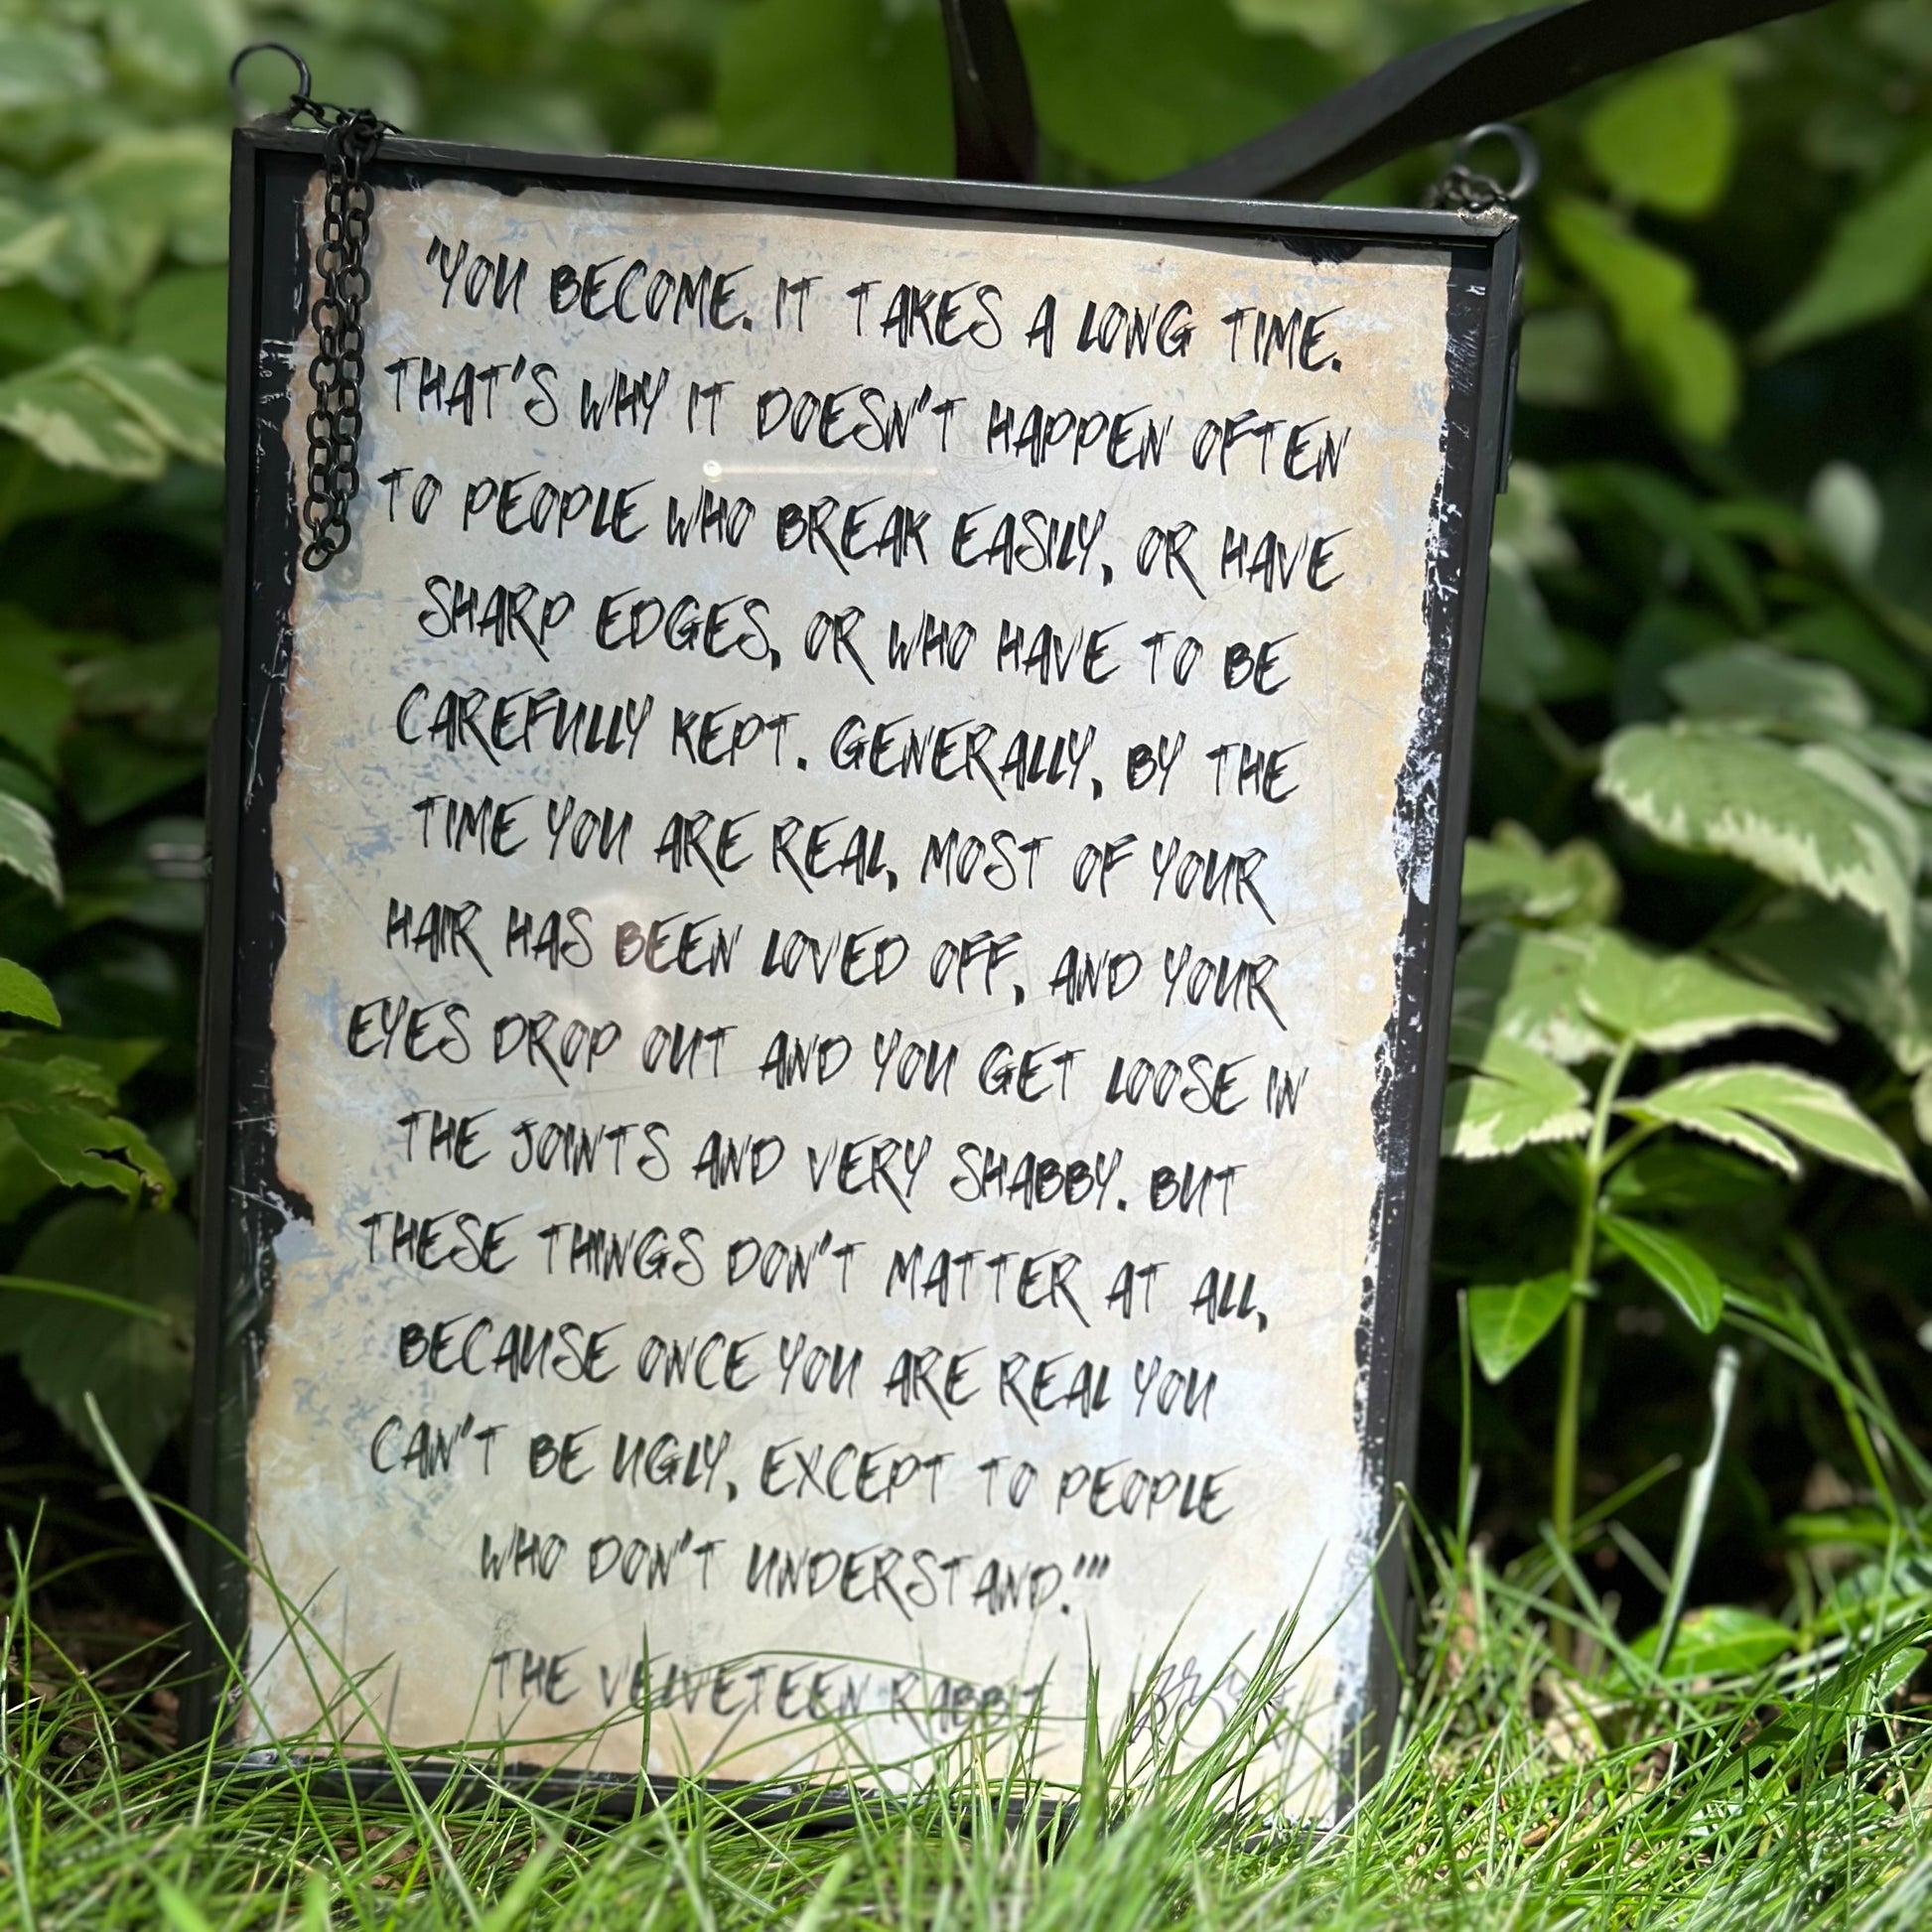 "YOU BECOME. IT TAKES A LONG TIME.
THAT'S WHY IT DOESN'T HAPPEN OFTEN
TO PEOPLE WHO BREAK EASILY, OR HAVE
SHARP EDGES, OR WHO HAVE TO BE
CAREFULLY KEPT. GENERALLY, BY THE
TIME YOU ARE REAL, MOST OF YOUR
HAIR HAS BEEN LOVED OFF, AND YOUR
EYES DROP OUT AND YOU GET LOOSE IN
THE JOINTS AND VERY SHABBY. BUT
THESE THINGS DON'T MATTER AT ALL,
BECAUSE ONCE YOU ARE REAL YOU
CAN'T BE UGLY, EXCEPT TO PEOPLE
WHO DON'T UNDERSTAND.'"
THE VELVETEEN RABBIT